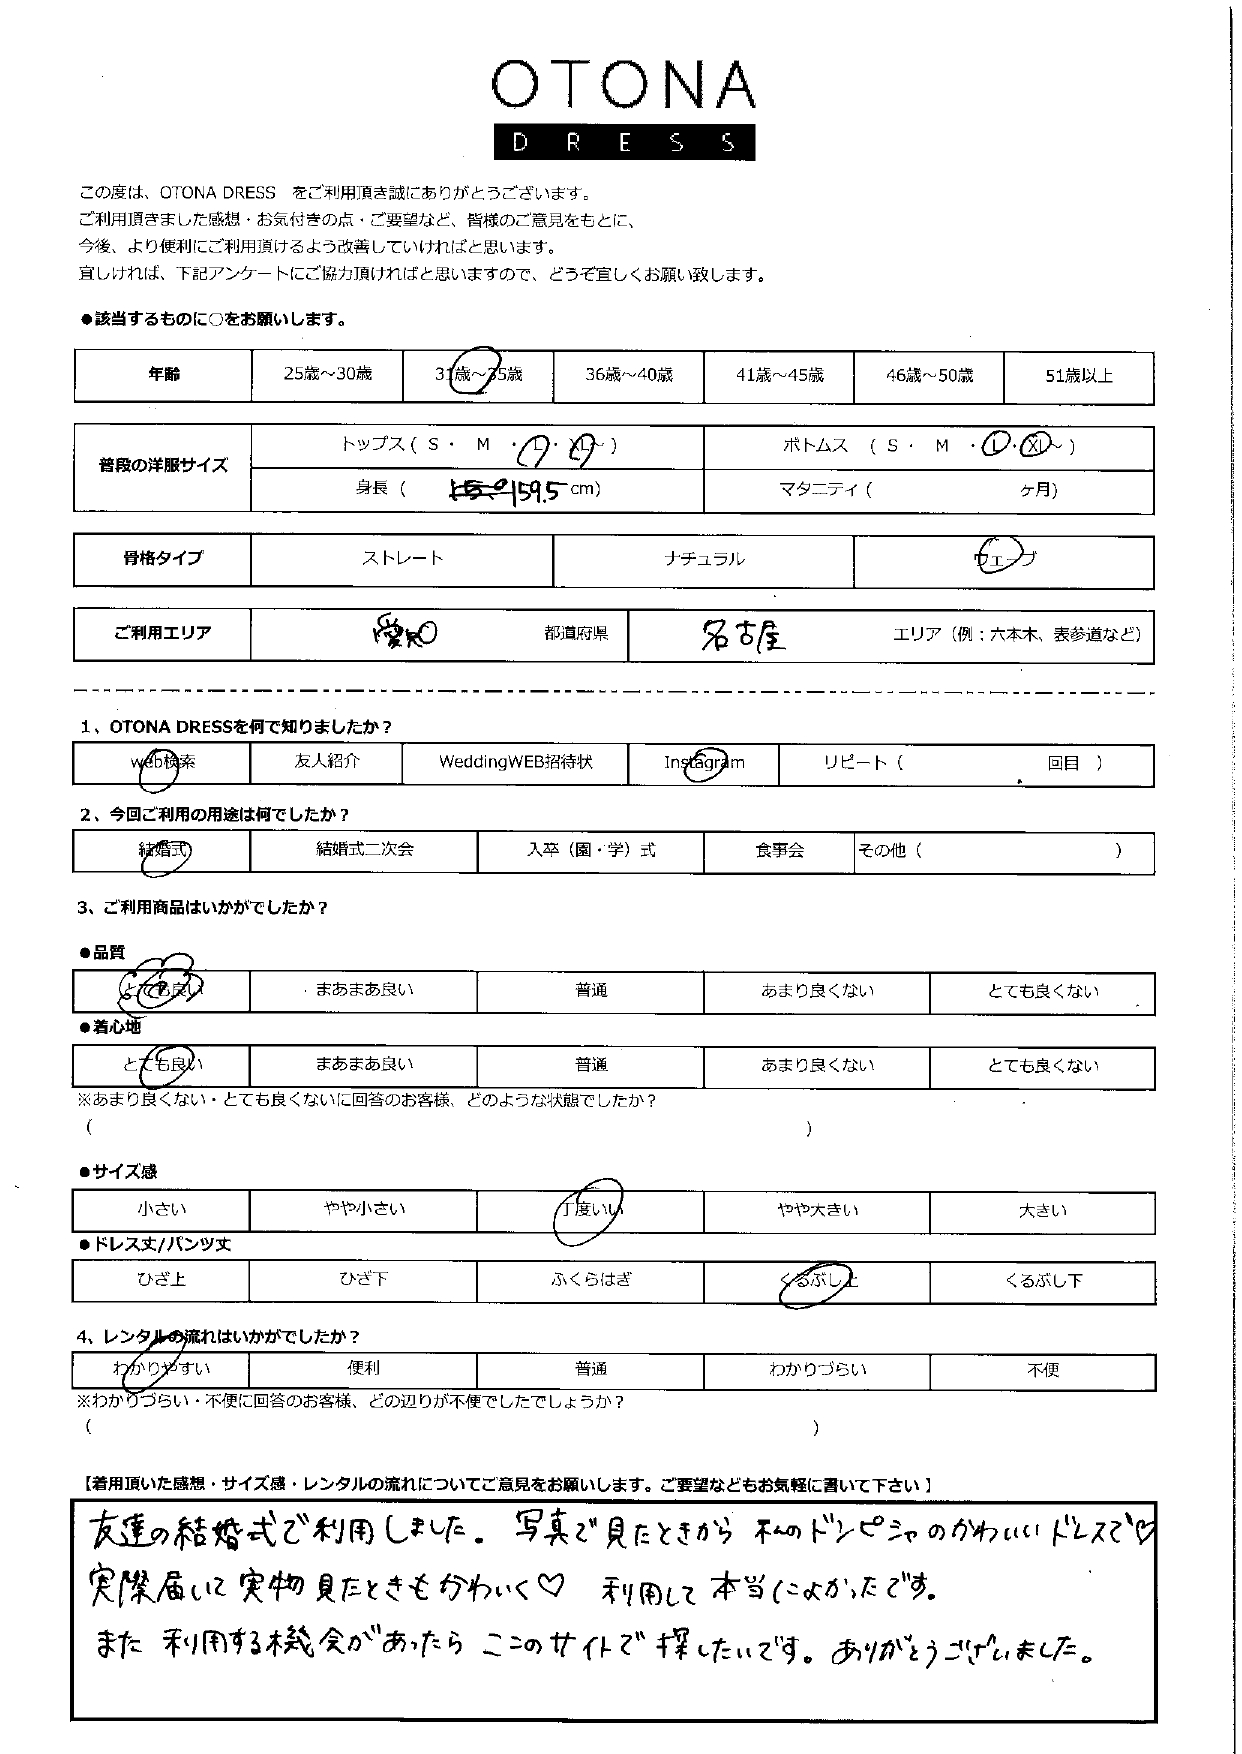 OTONA
DRESS
この度は、OTONA DRESS をご利用頂き誠にありがとうございます。
ご利用頂きました感想・お気付きの点・ご要望など、皆様のご意見をもとに、
今後、より便利にご利用頂けるよう改善していければと思います。
宜しければ、下記アンケートにご協力頂ければと思いますので、どうぞ宜しくお願い致します。
●該当するものに○をお願いします。
年齢 25歳～30歳 31歳～35歳 36歳～40歳 41歳～45歳 46歳～50歳 51歳以上
普段の洋服サイズ トップス ( S ・ M ・ L ・ XL～ ) ボトムス ( S ・ M ・ L ・ XL～ )
身長 ( 159.5 cm) マタニティ ( ヶ月)
骨格タイプ ストレート ナチュラル ウェーブ
ご利用エリア 愛知 都道府県 名古屋 エリア（例：六本木、表参道など）
1、OTONA DRESSを何で知りましたか？
web検索 友人紹介 WeddingWEB招待状 Instagram リピート（ 回目 ）
2、今回ご利用の用途は何でしたか？
結婚式 結婚式二次会 入卒（園・学）式 食事会 その他（ ）
3、ご利用商品はいかがでしたか？
●品質
とても良い まあまあ良い 普通 あまり良くない とても良くない
●着心地
とても良い まあまあ良い 普通 あまり良くない とても良くない
※あまり良くない・とても良くないに回答のお客様、どのような状態でしたか？
( )
●サイズ感
小さい やや小さい 丁度いい やや大きい 大きい
●ドレス丈/パンツ丈
ひざ上 ひざ下 ふくらはぎ くるぶし上 くるぶし下
4、レンタルの流れはいかがでしたか？
わかりやすい 便利 普通 わかりづらい 不便
※わかりづらい・不便に回答のお客様、どの辺りが不便でしたでしょうか？
( )
【着用頂いた感想・サイズ感・レンタルの流れについてご意見をお願いします。ご要望などもお気軽に書いて下さい】
友達の結婚式で利用しました。写真で見たときから私のドンピシャのかわいいドレスで♡
実際届いて実物見たときもかわいく♡ 利用して本当によかったです。
また利用する機会があったらここのサイトで探したいです。ありがとうございました。